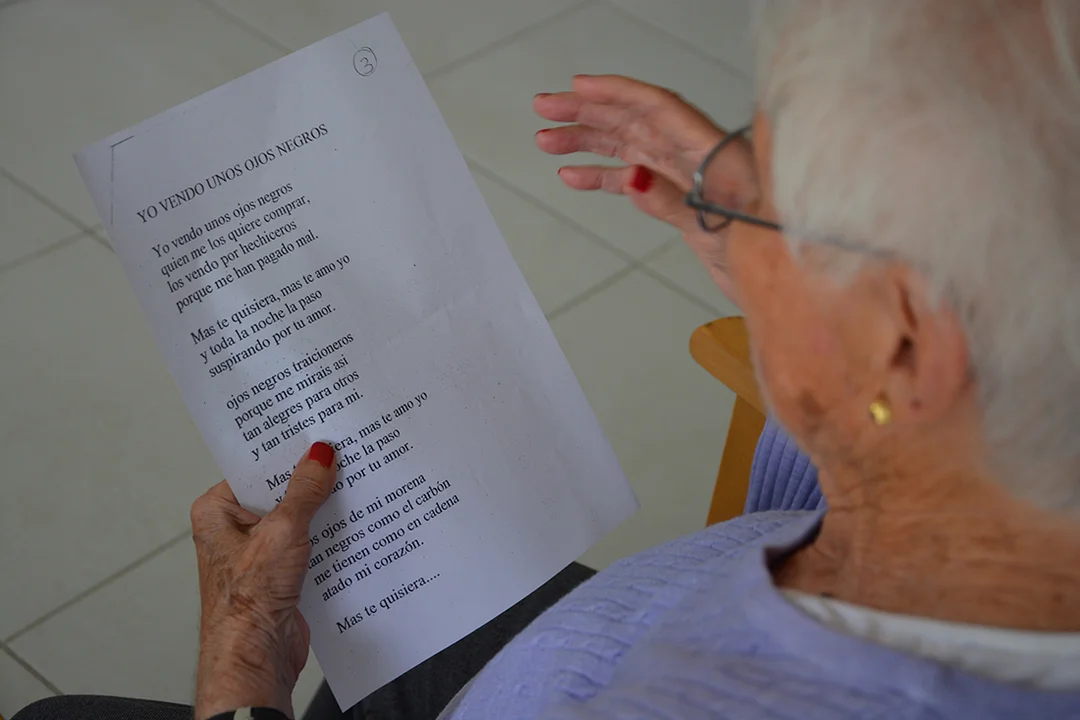 3
YO VENDO UNOS OJOS NEGROS
Yo vendo unos ojos negros
quien me los quiere comprar,
los vendo por hechiceros
porque me han pagado mal.
Mas te quisiera, mas te amo yo
y toda la noche la paso
suspirando por tu amor.
ojos negros traicioneros
porque me mirais asi
tan alegres para otros
y tan tristes para mi.
Mas mas te amo yo
la paso
por tu amor.
ojos de mi morena
tan negros como el carbón
me tienen como en cadena
atado mi corazón.
Mas te quisiera....